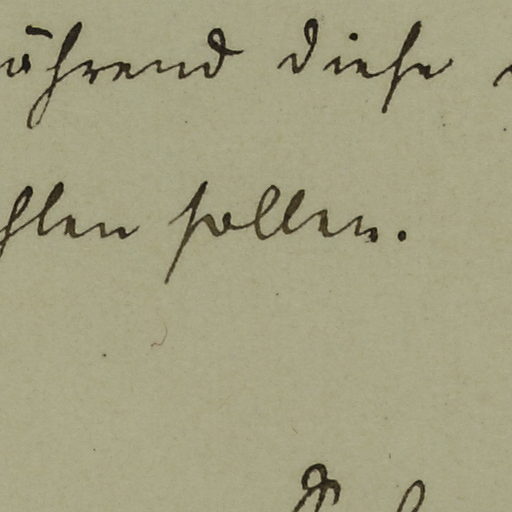 ährend diese
hlen sollen.